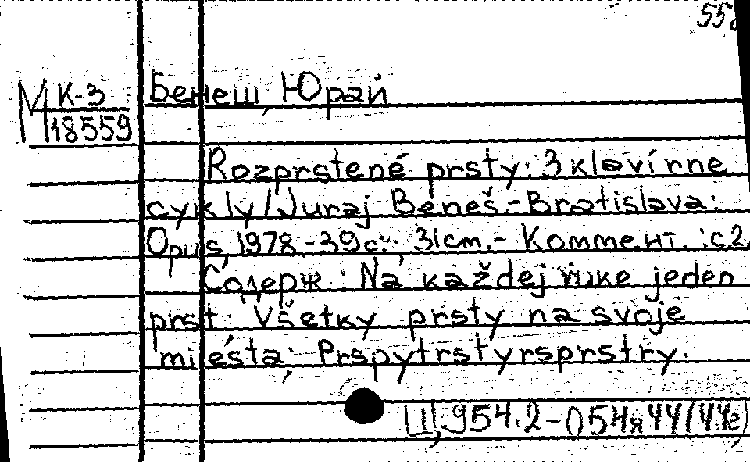 55
М К-3
18559
Бенеш, Юрай
Rozprstené prsty: 3 klavírne
cykly / Juraj Beneš.- Bratislava:
Opus, 1978.-39 с.; 31cm.- Коммент.: с.2
Содерж.: Na každej ruke jeden
prst; Všetky prsty na svoje
miesta; Prspytrstyrsprstry.
Щ954.2-054я44(4Че)